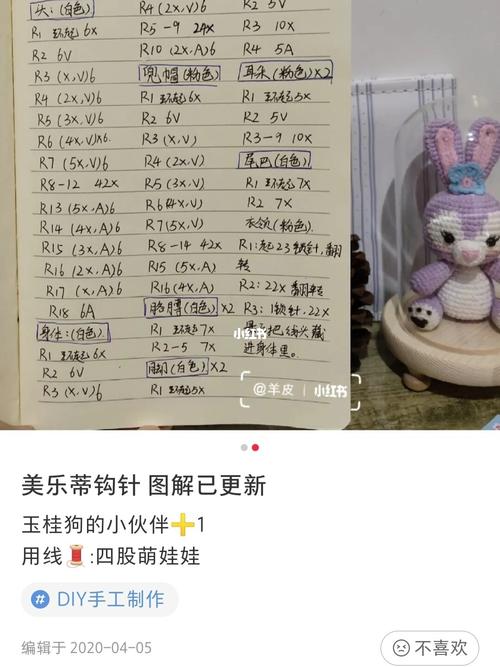 头:(白色)
R1 环起 6x
R2 6V
R3 (x,V)6
R4 (2x,V)6
R5 (3x,V)6
R6 (4x,V)x6
R7 (5x,V)6
R8-12 42x
R13 (5x,A)6
R14 (4x,A)6
R15 (3x,A)6
R16 (2x,A)6
R17 (x,A)6
R18 6A
身体:(白色)
R1 环起 6x
R2 6V
R3 (x,V)6
R4 (2x,V)6
R5-9 24x
R10 (2x,A)6
兜帽(粉色)
R1 环起 6x
R2 6V
R3 (x,V)
R4 (2x,V)
R5 (3x,V)
R6 (4x,V)
R7 (5x,V)
R8-14 42x
R15 (5x,A)
R16 (4x,A)
胳膊(白色)x2
R1 环起 7x
R2-5 7x
脚(白色)x2
R1 环起5x
R2 5V
R3 10x
R4 5A
耳朵(粉色)x2
R1 环起 5x
R2 5V
R3-9 10x
尾巴(白色)
R1 环起 7x
R2 7x
衣领(粉色).
R1:起23锁针,翻
转
R2: 22x 翻转
R3: 1锁针,22x
把线头藏
进身体里。
小红书
@羊皮 小红书
美乐蒂钩针 图解已更新
玉桂狗的小伙伴➕1
用线🧵:四股萌娃娃
# DIY手工制作
编辑于 2020-04-05
不喜欢